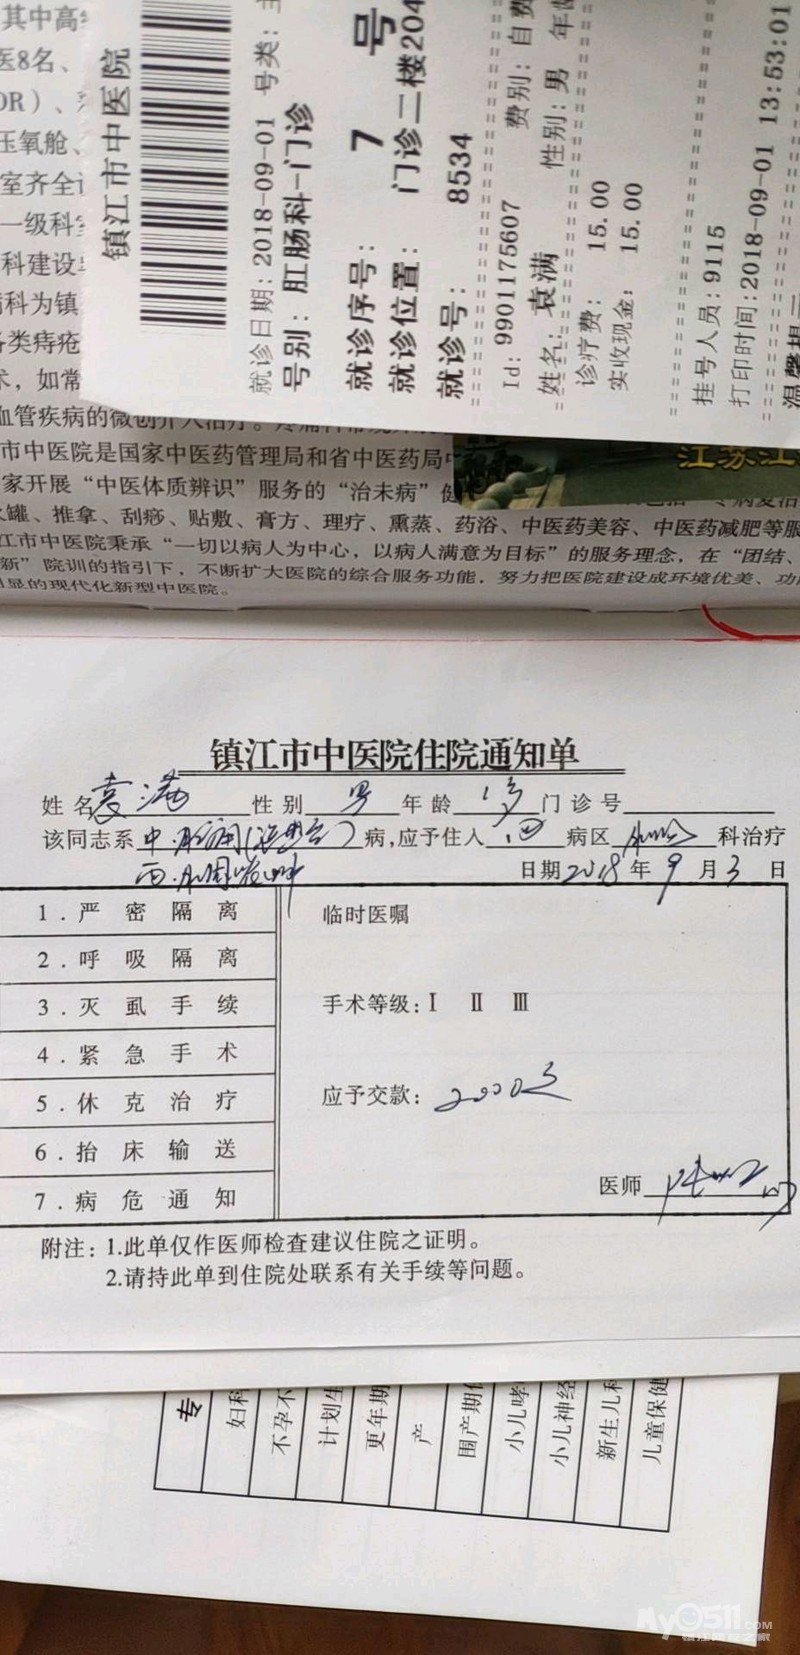 其中高
医8名、
OR）、
压氧舱、
室齐全
一级科
科建设
病科为镇
各类痔疮
术，如常
血管疾病的微创介入治疗。疼痛科常规
市中医院是国家中医药管理局和省中医药局
家开展“中医体质辨识”服务的“治未病”
火罐、推拿、刮痧、贴敷、膏方、理疗、熏蒸、药浴、中医药美容、中医药减肥等服
江市中医院秉承“一切以病人为中心，以病人满意为目标”的服务理念，在“团结、
新”院训的指引下，不断扩大医院的综合服务功能，努力把医院建设成环境优美、功
明显的现代化新型中医院。
江苏江
镇江市中医院
就诊日期：2018-09-01 号类：
号别：肛肠科-门诊
就诊序号： 7 号
就诊位置： 门诊二楼204
就诊号： 8534
Id: 9901175607 费别：自费
姓名：袁满 性别：男 年龄
诊疗费： 15.00
实收现金： 15.00
挂号人员：9115
打印时间：2018-09-01 13:53:01
温馨提示
镇江市中医院住院通知单
姓名 袁满 性别 男 年龄 1岁 门诊号
该同志系 中：肛痈 病，应予住入 四 病区 肛肠 科治疗
西：肛周脓肿 日期 2018 年 9 月 3 日
1．严密隔离
2．呼吸隔离
3．灭虱手续
4．紧急手术
5．休克治疗
6．抬床输送
7．病危通知
临时医嘱
手术等级：Ⅰ Ⅱ Ⅲ
应予交款：2000元
医师
附注：1.此单仅作医师检查建议住院之证明。
2.请持此单到住院处联系有关手续等问题。
专
妇科
不孕不
计划生
更年期
产
围产期
小儿哮
小儿神经
新生儿科
儿童保健
My0511.COM